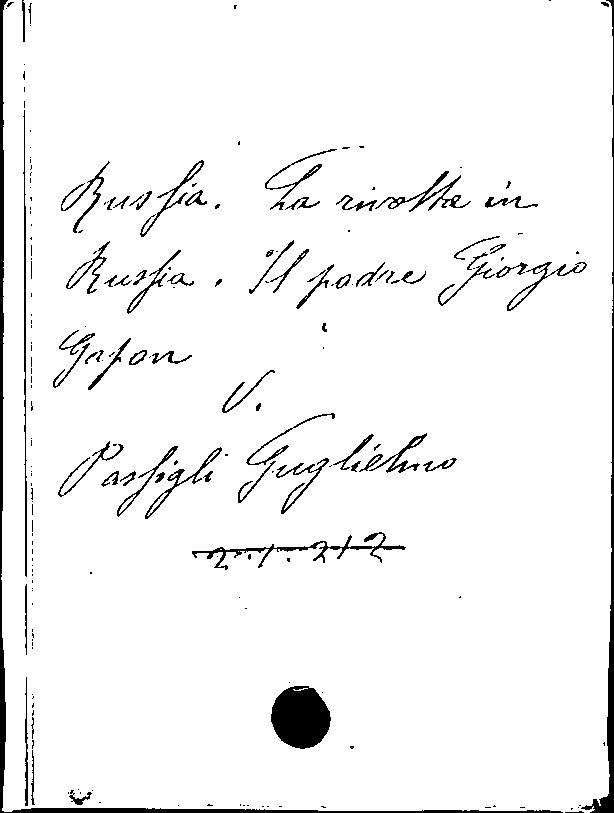 Russia. La rivolta in
Russia. Il padre Giorgio
Gapon
V.
Passigli Guglielmo
2.1.212